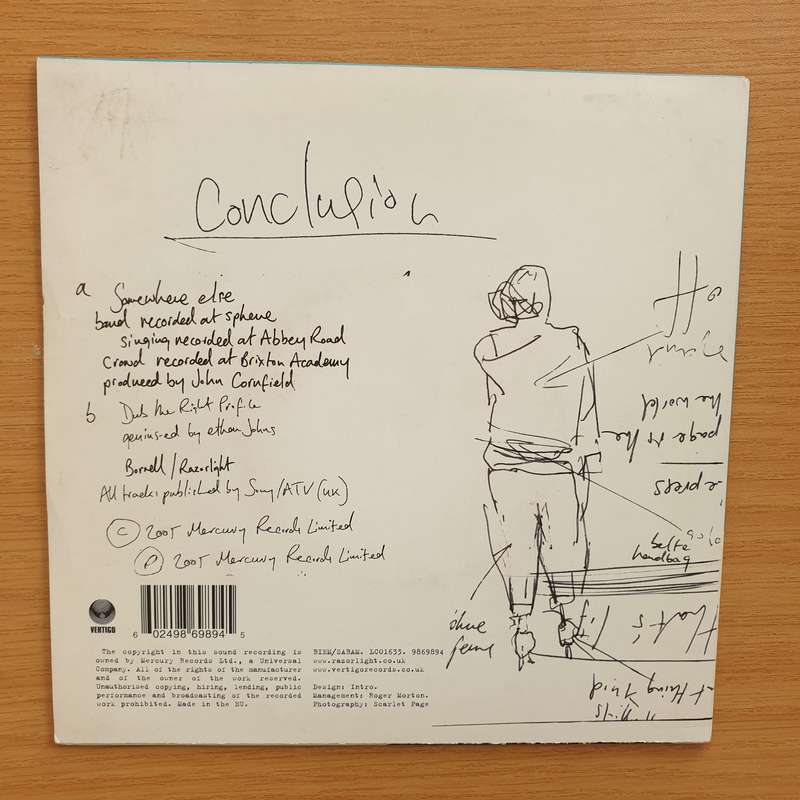 Conclusion
a Somewhere else
band recorded at sphere
singing recorded at Abbey Road
Crowd recorded at Brixton Academy
produced by John Cornfield
b Dub the Right Profile
genius-ed by ethan Johns
Borrell/Razorlight
All tracks published by Sony/ATV (UK)
© 2005 Mercury Records Limited
℗ 2005 Mercury Records Limited
VERTIGO
6 02498 69894 5
The copyright in this sound recording is
owned by Mercury Records Ltd., a Universal
Company. All of the rights of the manufacturer
and of the owner of the work reserved.
Unauthorised copying, hiring, lending, public
performance and broadcasting of the recorded
work prohibited. Made in the EU.
BIEM/SABAM. LC01633. 9869894
www.razorlight.co.uk
www.vertigorecords.co.uk
Design: Intro.
Management: Roger Morton.
Photography: Scarlet Page
the world
page is the
belte
handbag
that's life
thing third